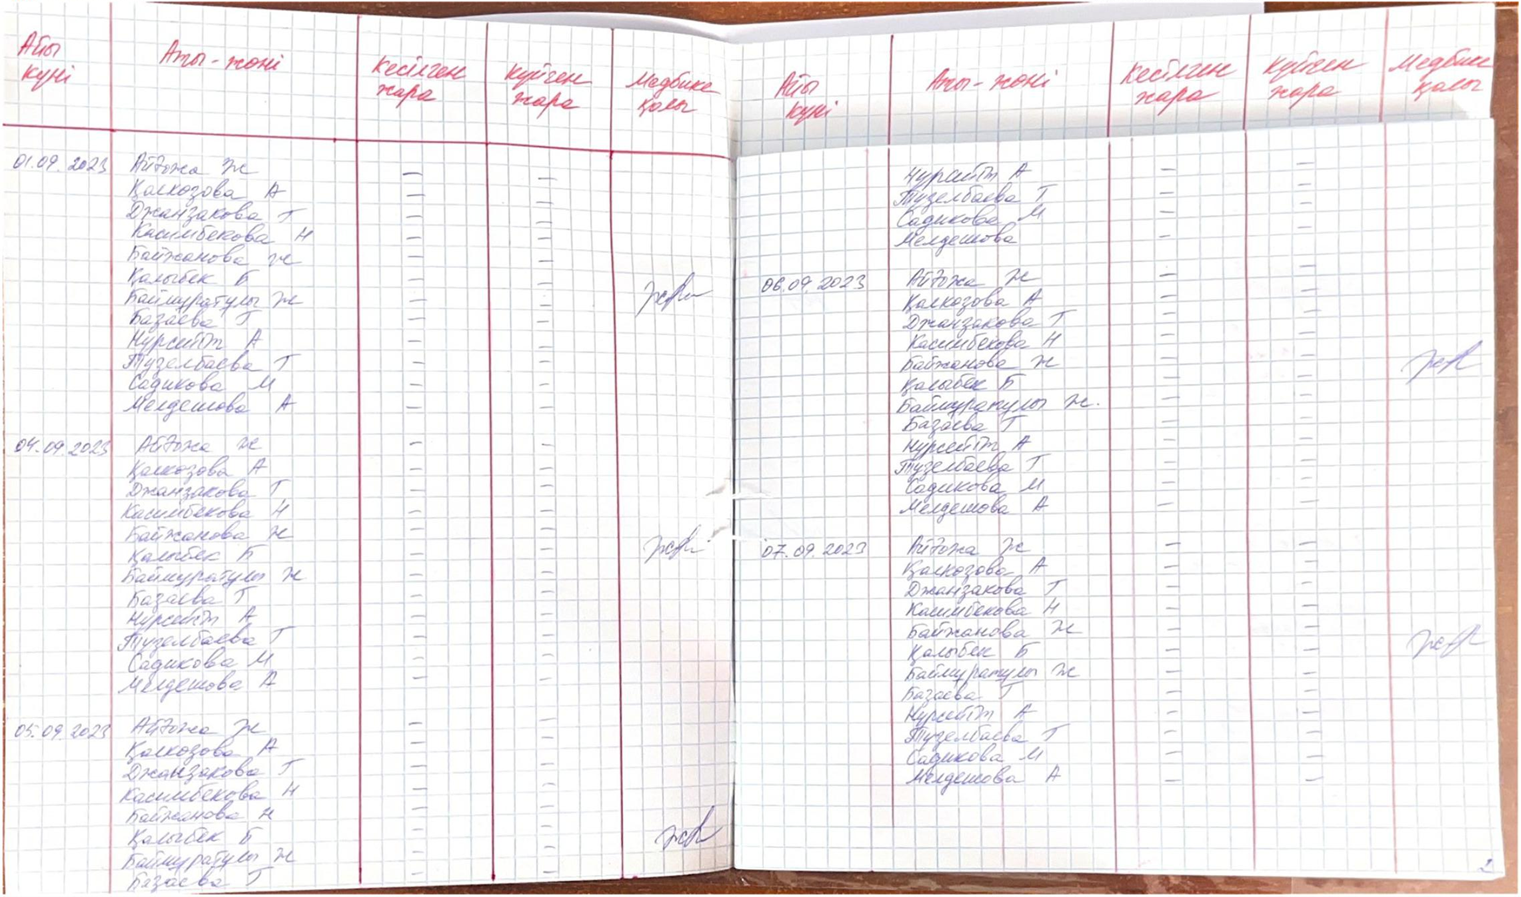 Айы күні Аты-жөні Кесілген жара Күйген жара Медбике қолы
01.09.2023 Айқожа Ж – –
Қалкозова А – –
Джанзакова Г – –
Касимбекова Н – –
Байжанова Ж – –
Қалыбек Б – –
Баймуратулы Ж – –
Базаева Г – –
Нурсейіт А – –
Тузелбаева Г – –
Садикова М – –
Мелдешова А – –
04.09.2023 Айқожа Ж – –
Қалкозова А – –
Джанзакова Г – –
Касимбекова Н – –
Байжанова Ж – –
Қалыбек Б – –
Баймуратулы Ж – –
Базаева Г – –
Нурсейіт А – –
Тузелбаева Г – –
Садикова М – –
Мелдешова А – –
05.09.2023 Айқожа Ж – –
Қалкозова А – –
Джанзакова Г – –
Касимбекова Н – –
Байжанова Н – –
Қалыбек Б – –
Баймуратулы Ж – –
Базаева Г – –
Айы күні Аты-жөні Кесілген жара Күйген жара Медбике қолы
Нурсейіт А – –
Тузелбаева Г – –
Садикова М – –
Мелдешова – –
06.09.2023 Айқожа Ж – –
Қалкозова А – –
Джанзакова Г – –
Касимбекова Н – –
Байжанова Ж – –
Қалыбек Б – –
Баймуратулы Ж. – –
Базаева Г – –
Нурсейіт А – –
Тузелбаева Г – –
Садикова М – –
Мелдешова А – –
07.09.2023 Айқожа Ж – –
Қалкозова А – –
Джанзакова Г – –
Касимбекова Н – –
Байжанова Ж – –
Қалыбек Б – –
Баймуратулы Ж – –
Базаева Г – –
Нурсейіт А – –
Тузелбаева Г – –
Садикова М – –
Мелдешова А – –
2